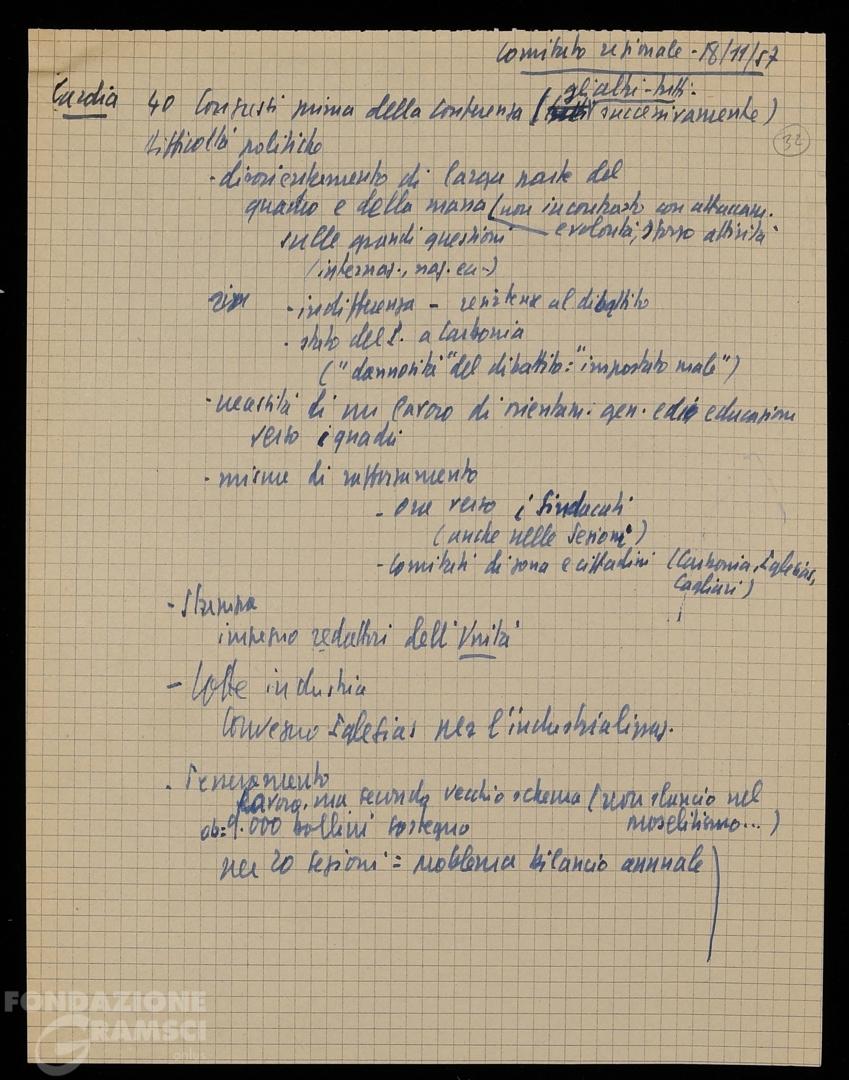 Comitato regionale - 18/11/57
gli altri tutti
Cardia 40 Congressi prima della Conferenza ( successivamente)
32
Difficoltà politiche
- disorientamento di larga parte del
quadro e della massa (non in contrasto con attaccam.
sulle grandi questioni e volontà, sforzo attività
(internaz., naz. ecc.)
- indifferenza - resistenze al dibattito
- stato del P. a Carbonia
("dannosità" del dibattito = "impostato male")
- necessità di un lavoro di orientam. gen. e di educazione
verso i quadri
- misure di rafforzamento
- verso i Sindacati
(anche nelle Sezioni)
- Comitati di zona e cittadini (Carbonia, Iglesias,
Cagliari)
- Stampa
impegno redattori dell'Unità
- Lotte industria
Convegno Iglesias per l'industrializzaz.
- Tesseramento
Lavoro, ma secondo vecchio schema (non slancio nel
ob = 9.000 bollini sostegno proselitismo...)
per 20 sezioni = problema bilancio annuale
FONDAZIONE
GRAMSCI
onlus